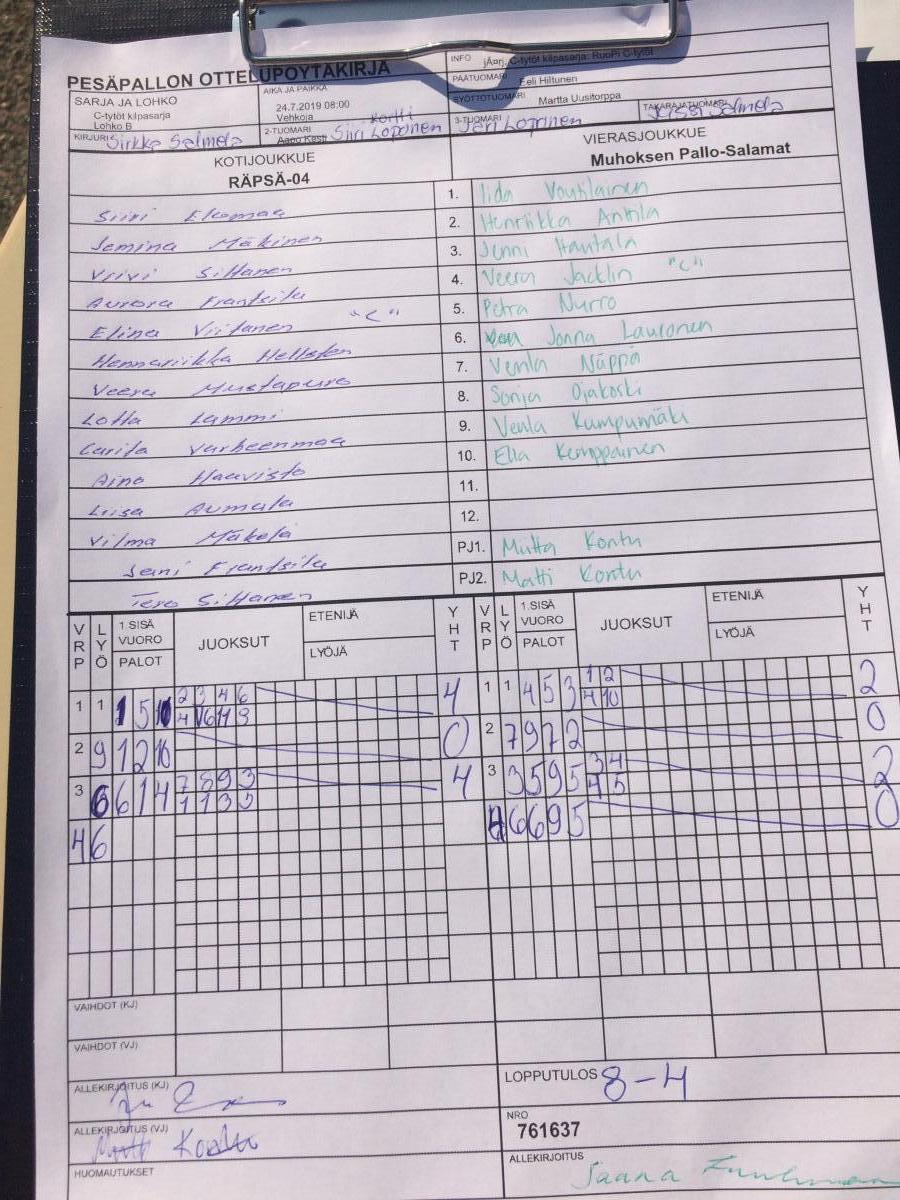 PESÄPALLON OTTELUPÖYTÄKIRJA
SARJA JA LOHKO
C-tytöt kilpasarja
Lohko B
AIKA JA PAIKKA
24.7.2019 08:00
Vehkoja kortti
INFO jÄorj, C-tytöt kilpasarja: RuoPi C-tytöt
PÄÄTUOMARI Eeli Hiltunen
SYÖTTÖTUOMARI Martta Uusitorppa
KIRJURI Sirkka Salmela
2-TUOMARI Siiri Loponen
3-TUOMARI Jari Loponen
TAKARAJATUOMARI Salmela
KOTIJOUKKUE
RÄPSÄ-04
VIERASJOUKKUE
Muhoksen Pallo-Salamat
Siiri Ekomaa
1. Iida Voutilainen
Jemina Mäkinen
2. Henriikka Anttila
Siltanen
3. Jenni Hautala
Aurora Frantsila
4. Veera Jacklin "C"
Elina Viitanen "C"
5. Petra Nurro
Hennariikka Hellsten
6. Jonna Lauronen
Veera Mustapuro
7. Venla Näppä
Lotta Lammi
8. Sonja Ojakoski
Carita Varheenmaa
9. Venla Kumpumäki
Aino Haavisto
10. Ella Kemppainen
Liisa Aumala
11.
Vilma Mäkelä
12.
Jani Frantsila
PJ1. Miitta Kontu
Tero Siltanen
PJ2. Matti Kontu
VRP LYÖ 1.SISÄ VUORO PALOT JUOKSUT ETENIJÄ LYÖJÄ YHT
VRP LYÖ 1.SISÄ VUORO PALOT JUOKSUT ETENIJÄ LYÖJÄ YHT
1 1 1 5 10 2 3 4 6 4
1 1 4 5 3 1 2 4 10 2
2 9 1 2 10 0
2 7 9 7 2 0
3 6 6 1 4 7 8 9 3 1 1 3 5 4
3 3 5 9 5 3 4 4 5 2
4 6
4 6 6 9 5 0
VAIHDOT (KJ)
VAIHDOT (VJ)
ALLEKIRJOITUS (KJ)
LOPPUTULOS 8-4
ALLEKIRJOITUS (VJ)
NRO
761637
HUOMAUTUKSET
ALLEKIRJOITUS Jaana